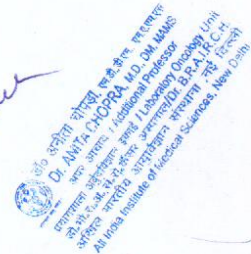 डॉ० अनीता चोपड़ा, एम.डी.
Dr. ANITA CHOPRA, M.D., DM, MAMS
अपर आचार्य / Additional Professor
प्रयोगशाला इकाई / Laboratory Oncology Unit
/Dr. B.R.A.I.R.C.H.
अखिल भारतीय आयुर्विज्ञान संस्थान, नई दिल्ली
All India Institute of Medical Sciences, New Delhi